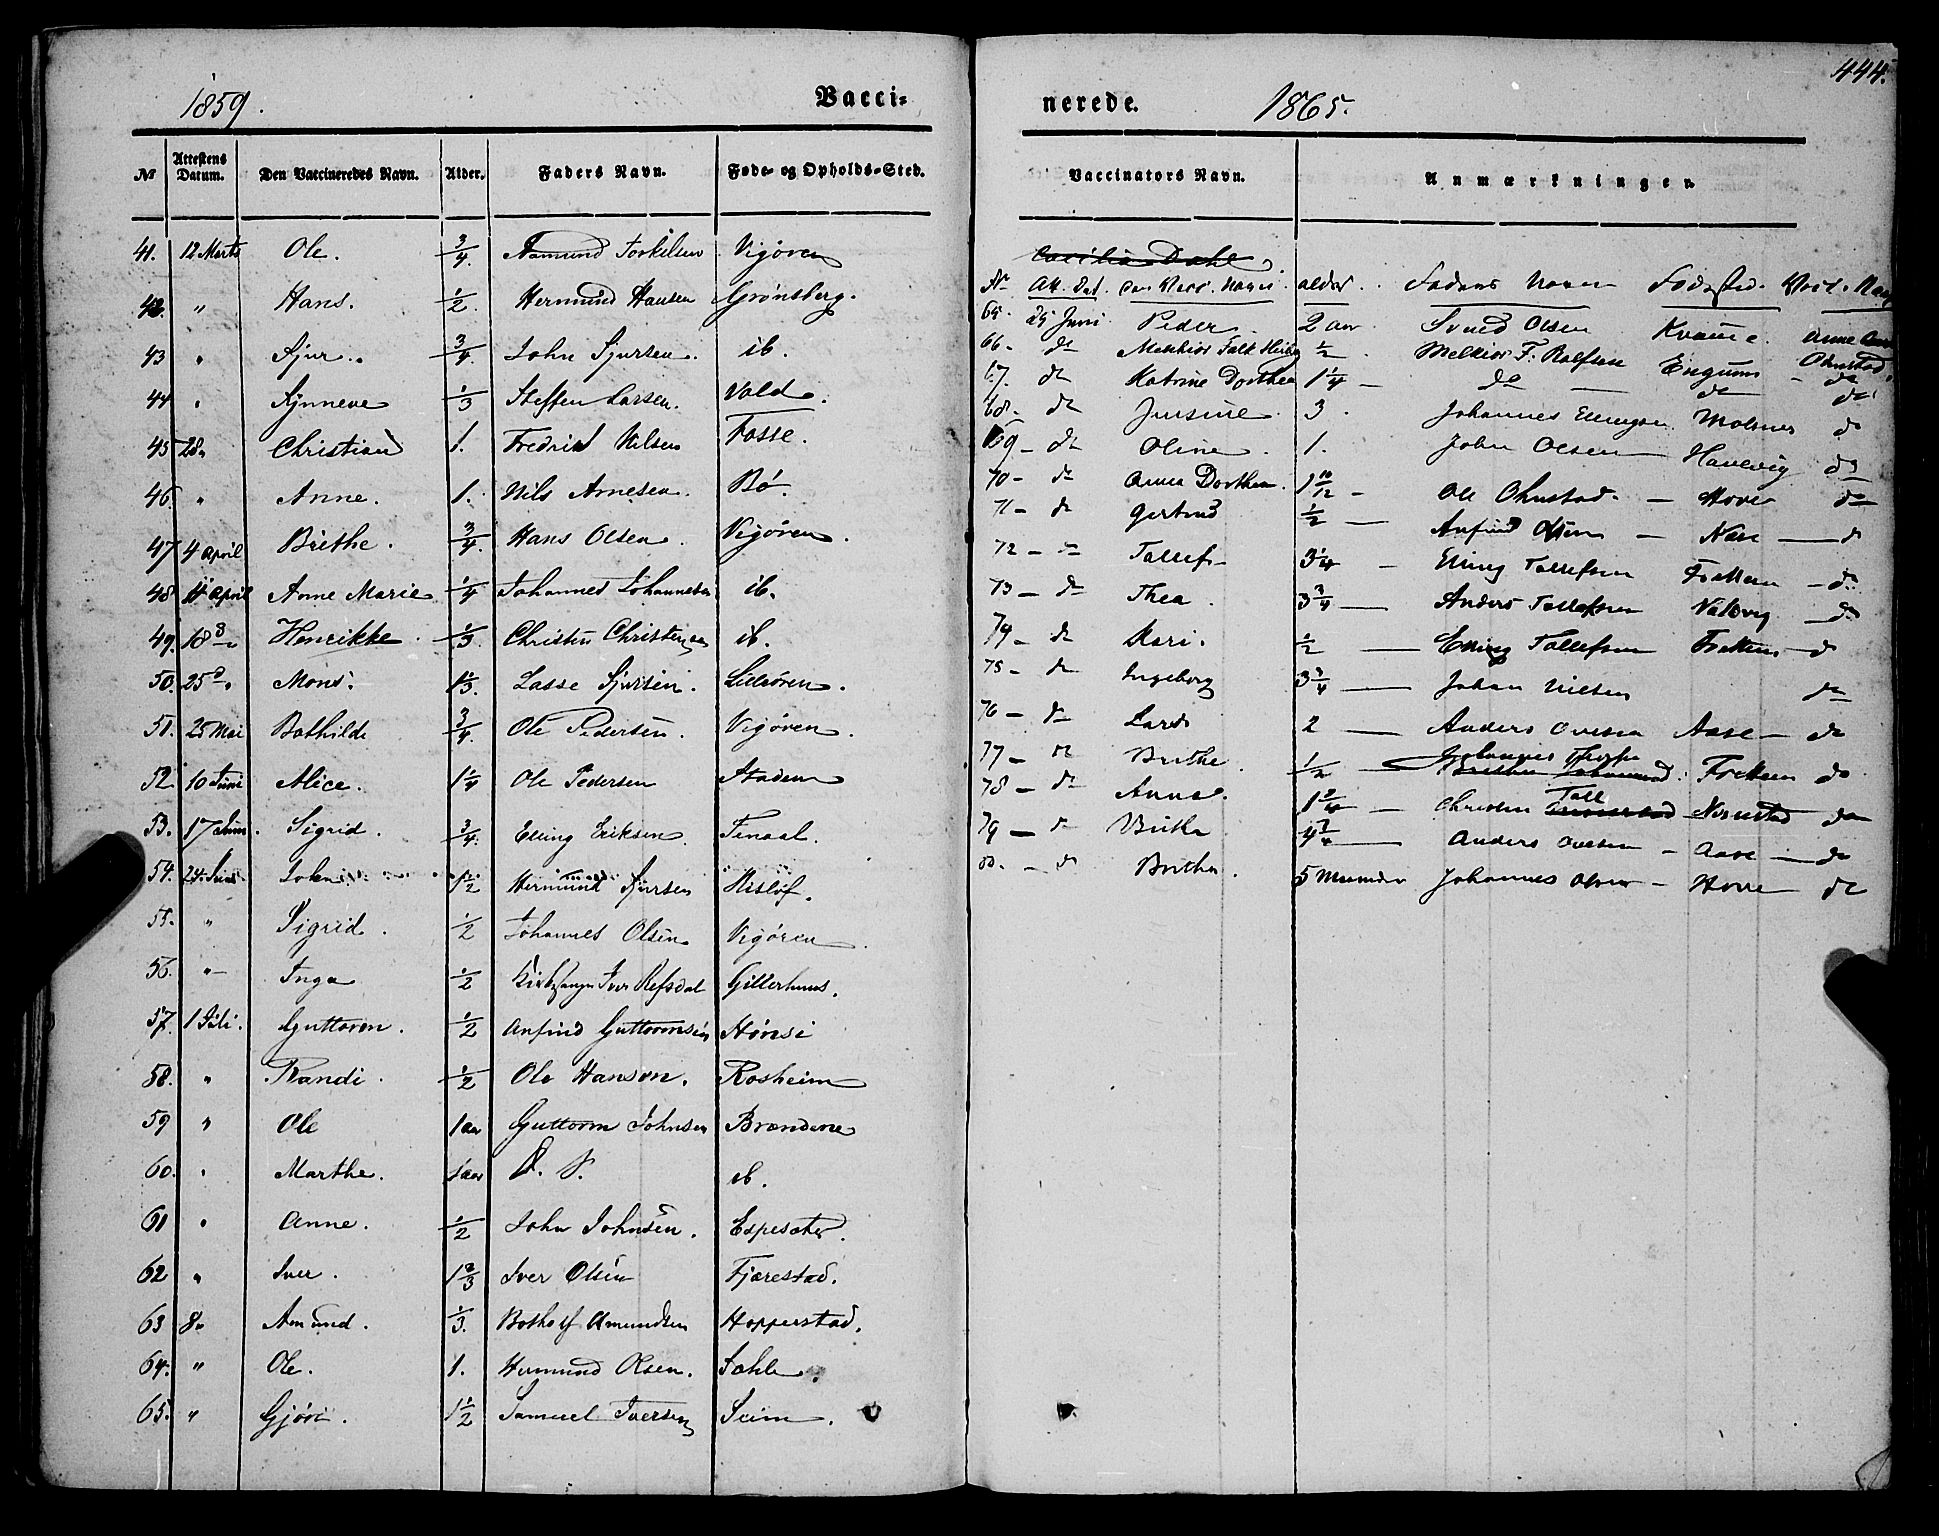 444.
1859. Vacci-
№ Attestens Datum. Den Vaccineredes Navn. Alder. Faders Navn. Føde- og Opholds-Sted.
41. 12 Marts Ole. 3/4. Aamund Torkelsen Vigøren
42. " Hans. 1/2. Hermund Hansen Grønsberg.
43 " Sjur. 3/4 John Sjursen. ib.
44 " Synneve 1/3 Steffen Larsen. Vold.
45 28 " Christian 1. Fredrik Nilsen Fosse.
46. " Anne. 1. Nils Arnesen. Bø.
47 4 April Brithe. 3/4. Hans Olsen. Vigøren.
48 11 April Anne Marie 1/4 Johannes Johannesen ib.
49. 18 " Henrikke. 1/3. Christen Christensen ib.
50. 25 " Mons. 1 1/3. Lasse Sjursen. Lilleøren.
51. 25 Mai Bothilde 3/4. Ole Pedersen. Vigøren.
52 10 Juni Alice. 1 1/4 Ole Pedersen Stadem
53. 17 Juni. Sigrid. 3/4. Elling Eriksen. Fenaal.
54. 24. Juni John 1 1/2 Hermund Sjursen Hisløf.
55. " Sigrid. 1/2 Johannes Olsen Vigøren.
56. " Inga 1/2 Kirkesanger Iver Refsdal Gillerhuus.
57. 1 Juli. Guttorm. 1/2 Anfind Guttormsen Hønsi
58. " Randi. 1/2 Ole Hanson. Rosheim
59 " Ole 1 aar Guttorm Johnsen Brændene
60. " Marthe. 1 aar D. S. ib.
61 " Anne. 1/2 John Johnsen. Espesæter.
62 " Iver. 1 2/3 Iver Olsen Fjærestad.
63 8 " Amund. 1/3. Botholf Amundsen Hopperstad.
64. " Ole. 1. Hermund Olsen. Tæhle.
65. " Gjøri. 1 1/2 Samuel Iversen Seim.
nerede. 1865.
Vaccinators Navn. Anmærkninger.
Cecilia Dahl
№ Att. Dat. Den Vacc. Navn. alder. Faders Navn Fødested. Vacc. Navn
65. 25 Juni Peder. 2 aar. Svend Olsen Kvamme. Anne
66. do Melchior Falk 1/2. Melkior F. Rolfsen Engum Ohnstad
67. do Katrine Dorthea 1 1/4 do do do
68. do Jensine. 3. Johannes Ellingsen Molsnes do
69 do Oline. 1. John Olsen Hanevig do
70 do Anna Dorthea. 1 10/12 Ole Ohnstad. Hove do
71 do Gertrud 1/2 Anfind Olsen Næse do
72 do Tollef 3 1/4 Elling Tollefsen Fretten do
73 do Thea. 3 3/4 Anders Tollefsen do
74 do Kari. 1/2 Elling Tollefsen Fretten do
75 do Ingeborg 3 3/4 Johan Nilsen do
76 do Lars 2 Anders Ovesen Aase do
77 do Brithe. 1/2 Fretten do
78 do Anna. 1 3/4 Christen Tall Nornstad do
79 do Britha 4 3/4 Anders Ovesen Aase do
80. do Brithe. 5 Maaneder Johannes Olsen Hove do